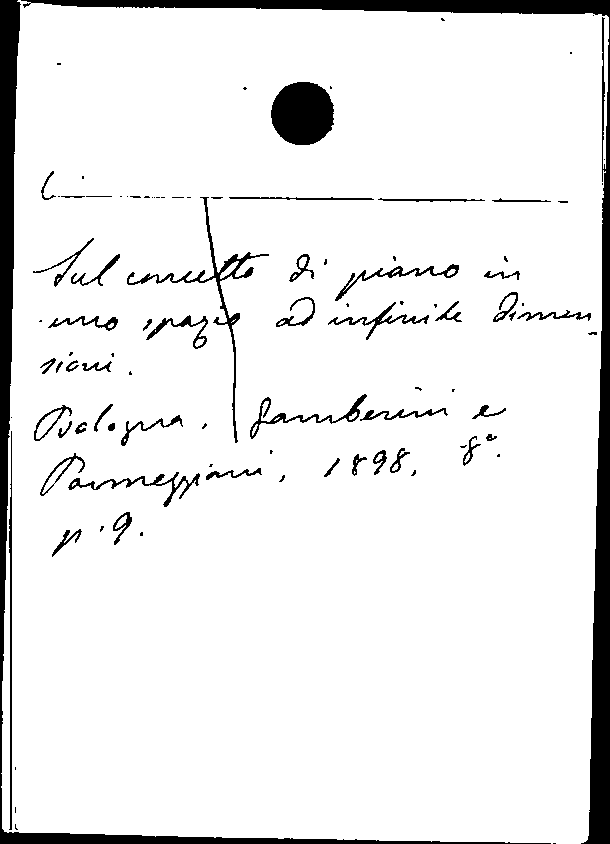 Sul concetto di piano in
uno spazio ad infinite dimen-
sioni.
Bologna, Gamberini e
Parmeggiani, 1898, 8°.
p. 9.